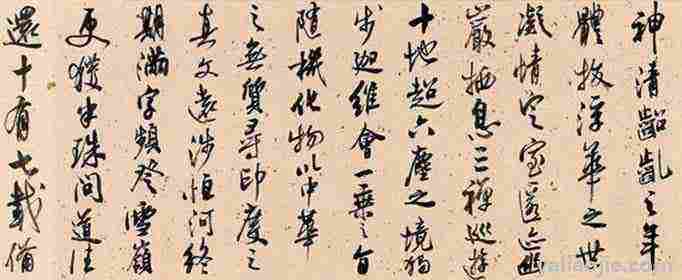 神清齠齔之年
體拔浮華之世
凝情定室匿迹幽
巖栖息三禪巡遊
十地超六塵之境獨
步迦維會一乘之旨
隨機化物以中華
之無質尋印度之
真文遠涉恒河終
期滿字頻登雪嶺
更獲半珠問道往
還十有七載備